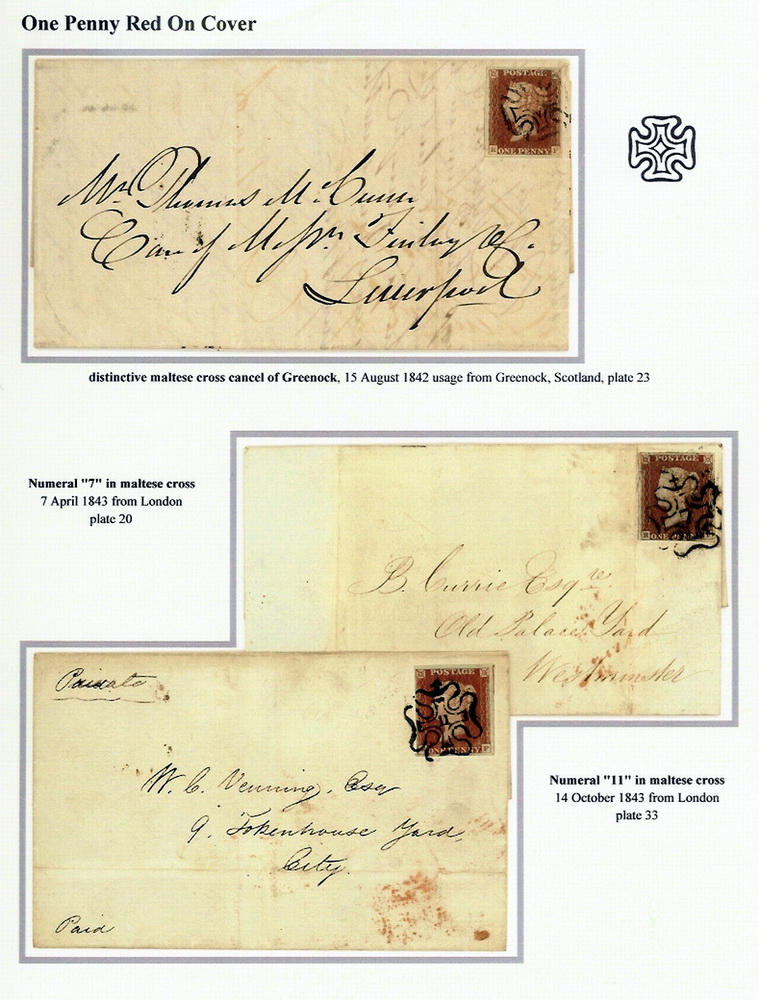 One Penny Red On Cover
POSTAGE
ONE PENNY
Mr. Thomas McCunn
Care of Messrs. Finlay & Co.
Liverpool
distinctive maltese cross cancel of Greenock, 15 August 1842 usage from Greenock, Scotland, plate 23
Numeral "7" in maltese cross
7 April 1843 from London
plate 20
POSTAGE
ONE PENNY
B. Currie Esqre.
Old Palace Yard
Westminster
Private
POSTAGE
ONE PENNY
W. C. Venning, Esqr
9. Tokenhouse Yard,
City.
Paid
Numeral "11" in maltese cross
14 October 1843 from London
plate 33